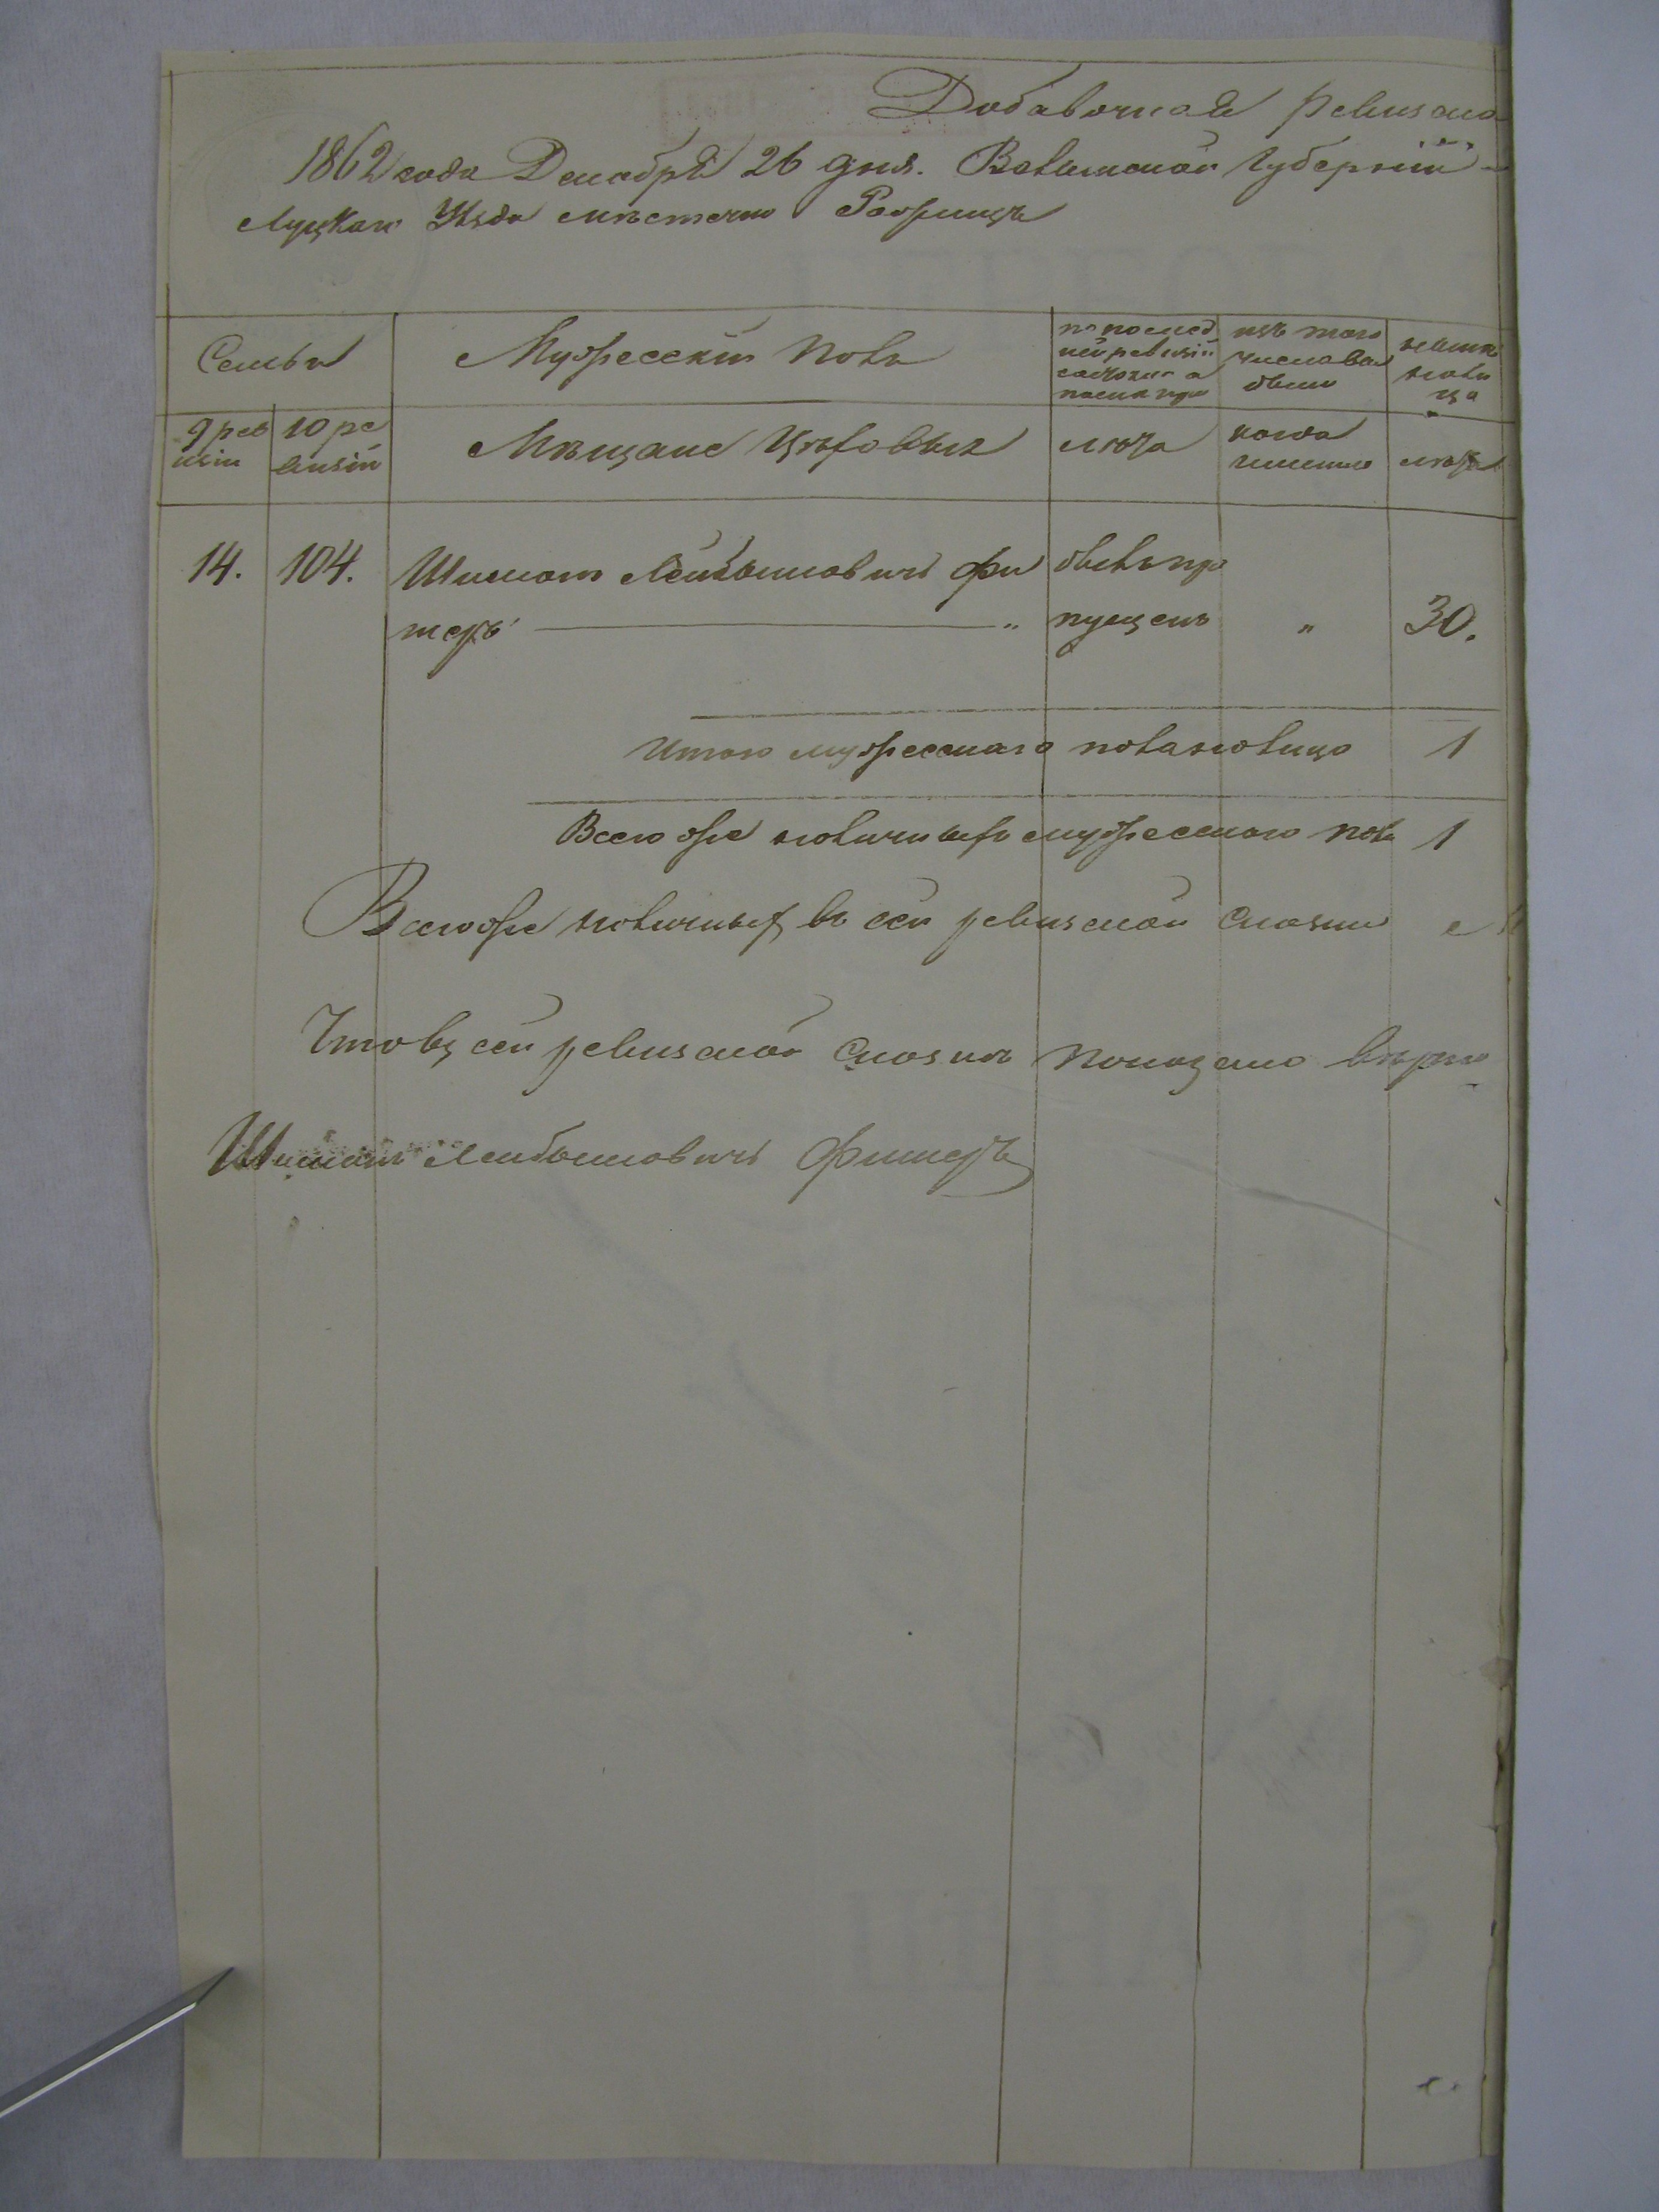 Добавочная ревизска
1862 года Декабря 26 дня. Волынской Губерніи
Луцкаго Уѣзда мѣстечко Рожищъ
Семьи
Мужескій Полъ
по послед
ней ревизіи
состояло а
после при
изъ того
числа вы
было
ныне на
лица
9 рев
изіи
10 ре
визіи
Мѣщане Цеховые
лѣта
когда
именно
лѣта
14.
104.
Шиман Лейбишовичъ Фи
теръ
былъ про
пущенъ
"
30.
Итого мужескаго пола налицо 1
Всего же наличныхъ мужескаго пола 1
Всего же наличныхъ въ сей ревизской сказки
Что въ сей ревизской сказкѣ показано вѣрно
Шиман Лейбишовичъ Фитеръ